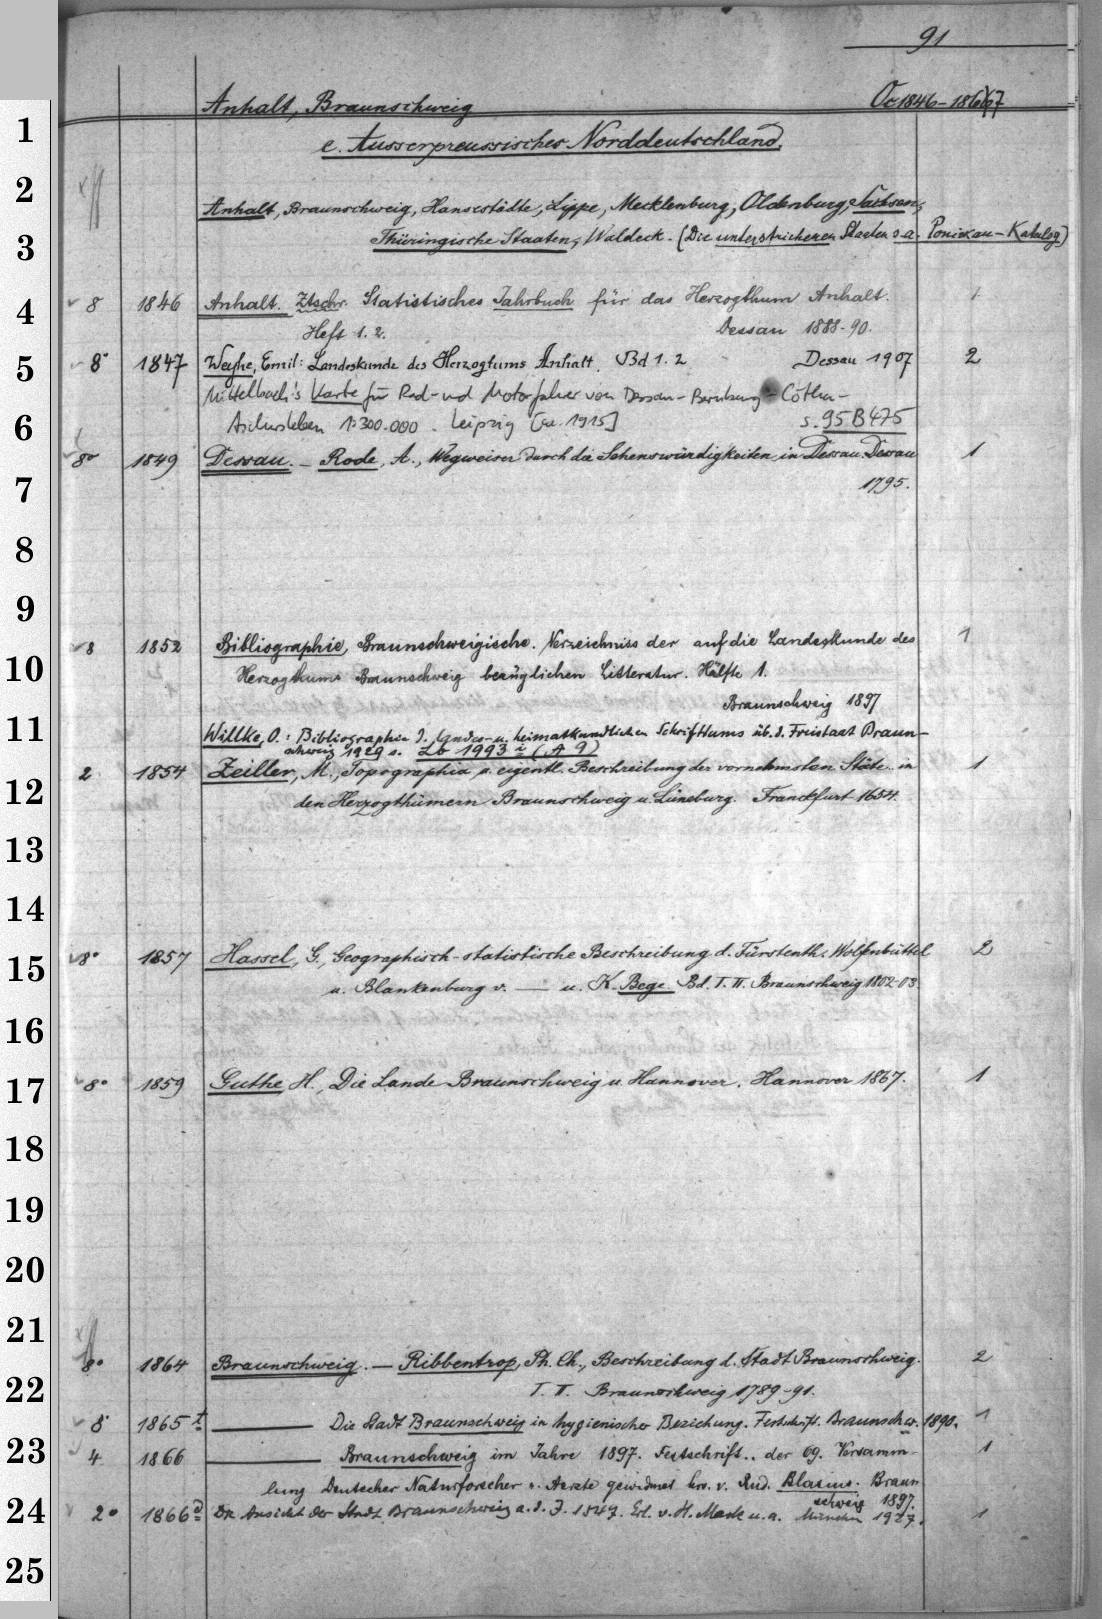 91
Anhalt, Braunschweig Oc 1846-1867
1
e. Ausserpreussisches Norddeutschland.
2
Anhalt, Braunschweig, Hansestädte, Lippe, Mecklenburg, Oldenburg, Sachsen,
3
Thüringische Staaten, Waldeck. (Die unterstrichenen Staaten s. a. Ponickau-Katalog)
4 8 1846 Anhalt. Ztschr. Statistisches Jahrbuch für das Herzogthum Anhalt. 1
Heft 1. 2. Dessau 1888-90.
5 8° 1847 Weyhe, Emil: Landeskunde des Herzogtums Anhalt. Bd 1. 2 Dessau 1907 2
Mittelbach's Karte für Rad- und Motorfahrer von Dessau-Bernburg-Cöthen-
6 Aschersleben 1:300.000. Leipzig [ca. 1915] s. 95 B 475
8° 1849 Dessau. - Rode, A., Wegweiser durch die Sehenswürdigkeiten in Dessau. Dessau 1
7 1795.
8
9
8 1852 Bibliographie, Braunschweigische. Verzeichniss der auf die Landeskunde des 1
10 Herzogthums Braunschweig bezüglichen Litteratur. Hälfte 1.
Braunschweig 1897
11 Willke, O.: Bibliographie d. landes- u. heimatkundlichen Schrifttums üb. d. Freistaat Braun-
schweig 1929 s. Zb 1993 i (A 9)
2 1854 Zeiller, M., Topographia u. eigentl. Beschreibung der vornehmsten Stäte.. in 1
12 den Herzogthümern Braunschweig u. Lüneburg. Franckfurt 1654.
13
14
15 8° 1857 Hassel, G., Geographisch-statistische Beschreibung d. Fürstenth. Wolfenbüttel 2
u. Blankenburg v. — u. K. Bege Bd. I. II. Braunschweig 1802-03.
16
17 8° 1859 Guthe, H., Die Lande Braunschweig u. Hannover. Hannover 1867. 1
18
19
20
21
8° 1864 Braunschweig. - Ribbentrop, Ph. Ch., Beschreibung d. Stadt Braunschweig. 2
22 I. II. Braunschweig 1789-91.
8° 1865 t — Die Stadt Braunschweig in hygienischer Beziehung. Festschrift. Braunschw. 1890. 1
23 4 1866 — Braunschweig im Jahre 1897. Festschrift.. der 69. Versamm- 1
lung Deutscher Naturforscher u. Aerzte gewidmet hrs. v. Rud. Blasius. Braun
schweig 1897.
24 2° 1866 d Die Ansicht der Stadt Braunschweig a. d. J. 1547. Erl. v. H. Mack u. a. München 1927. 1
25